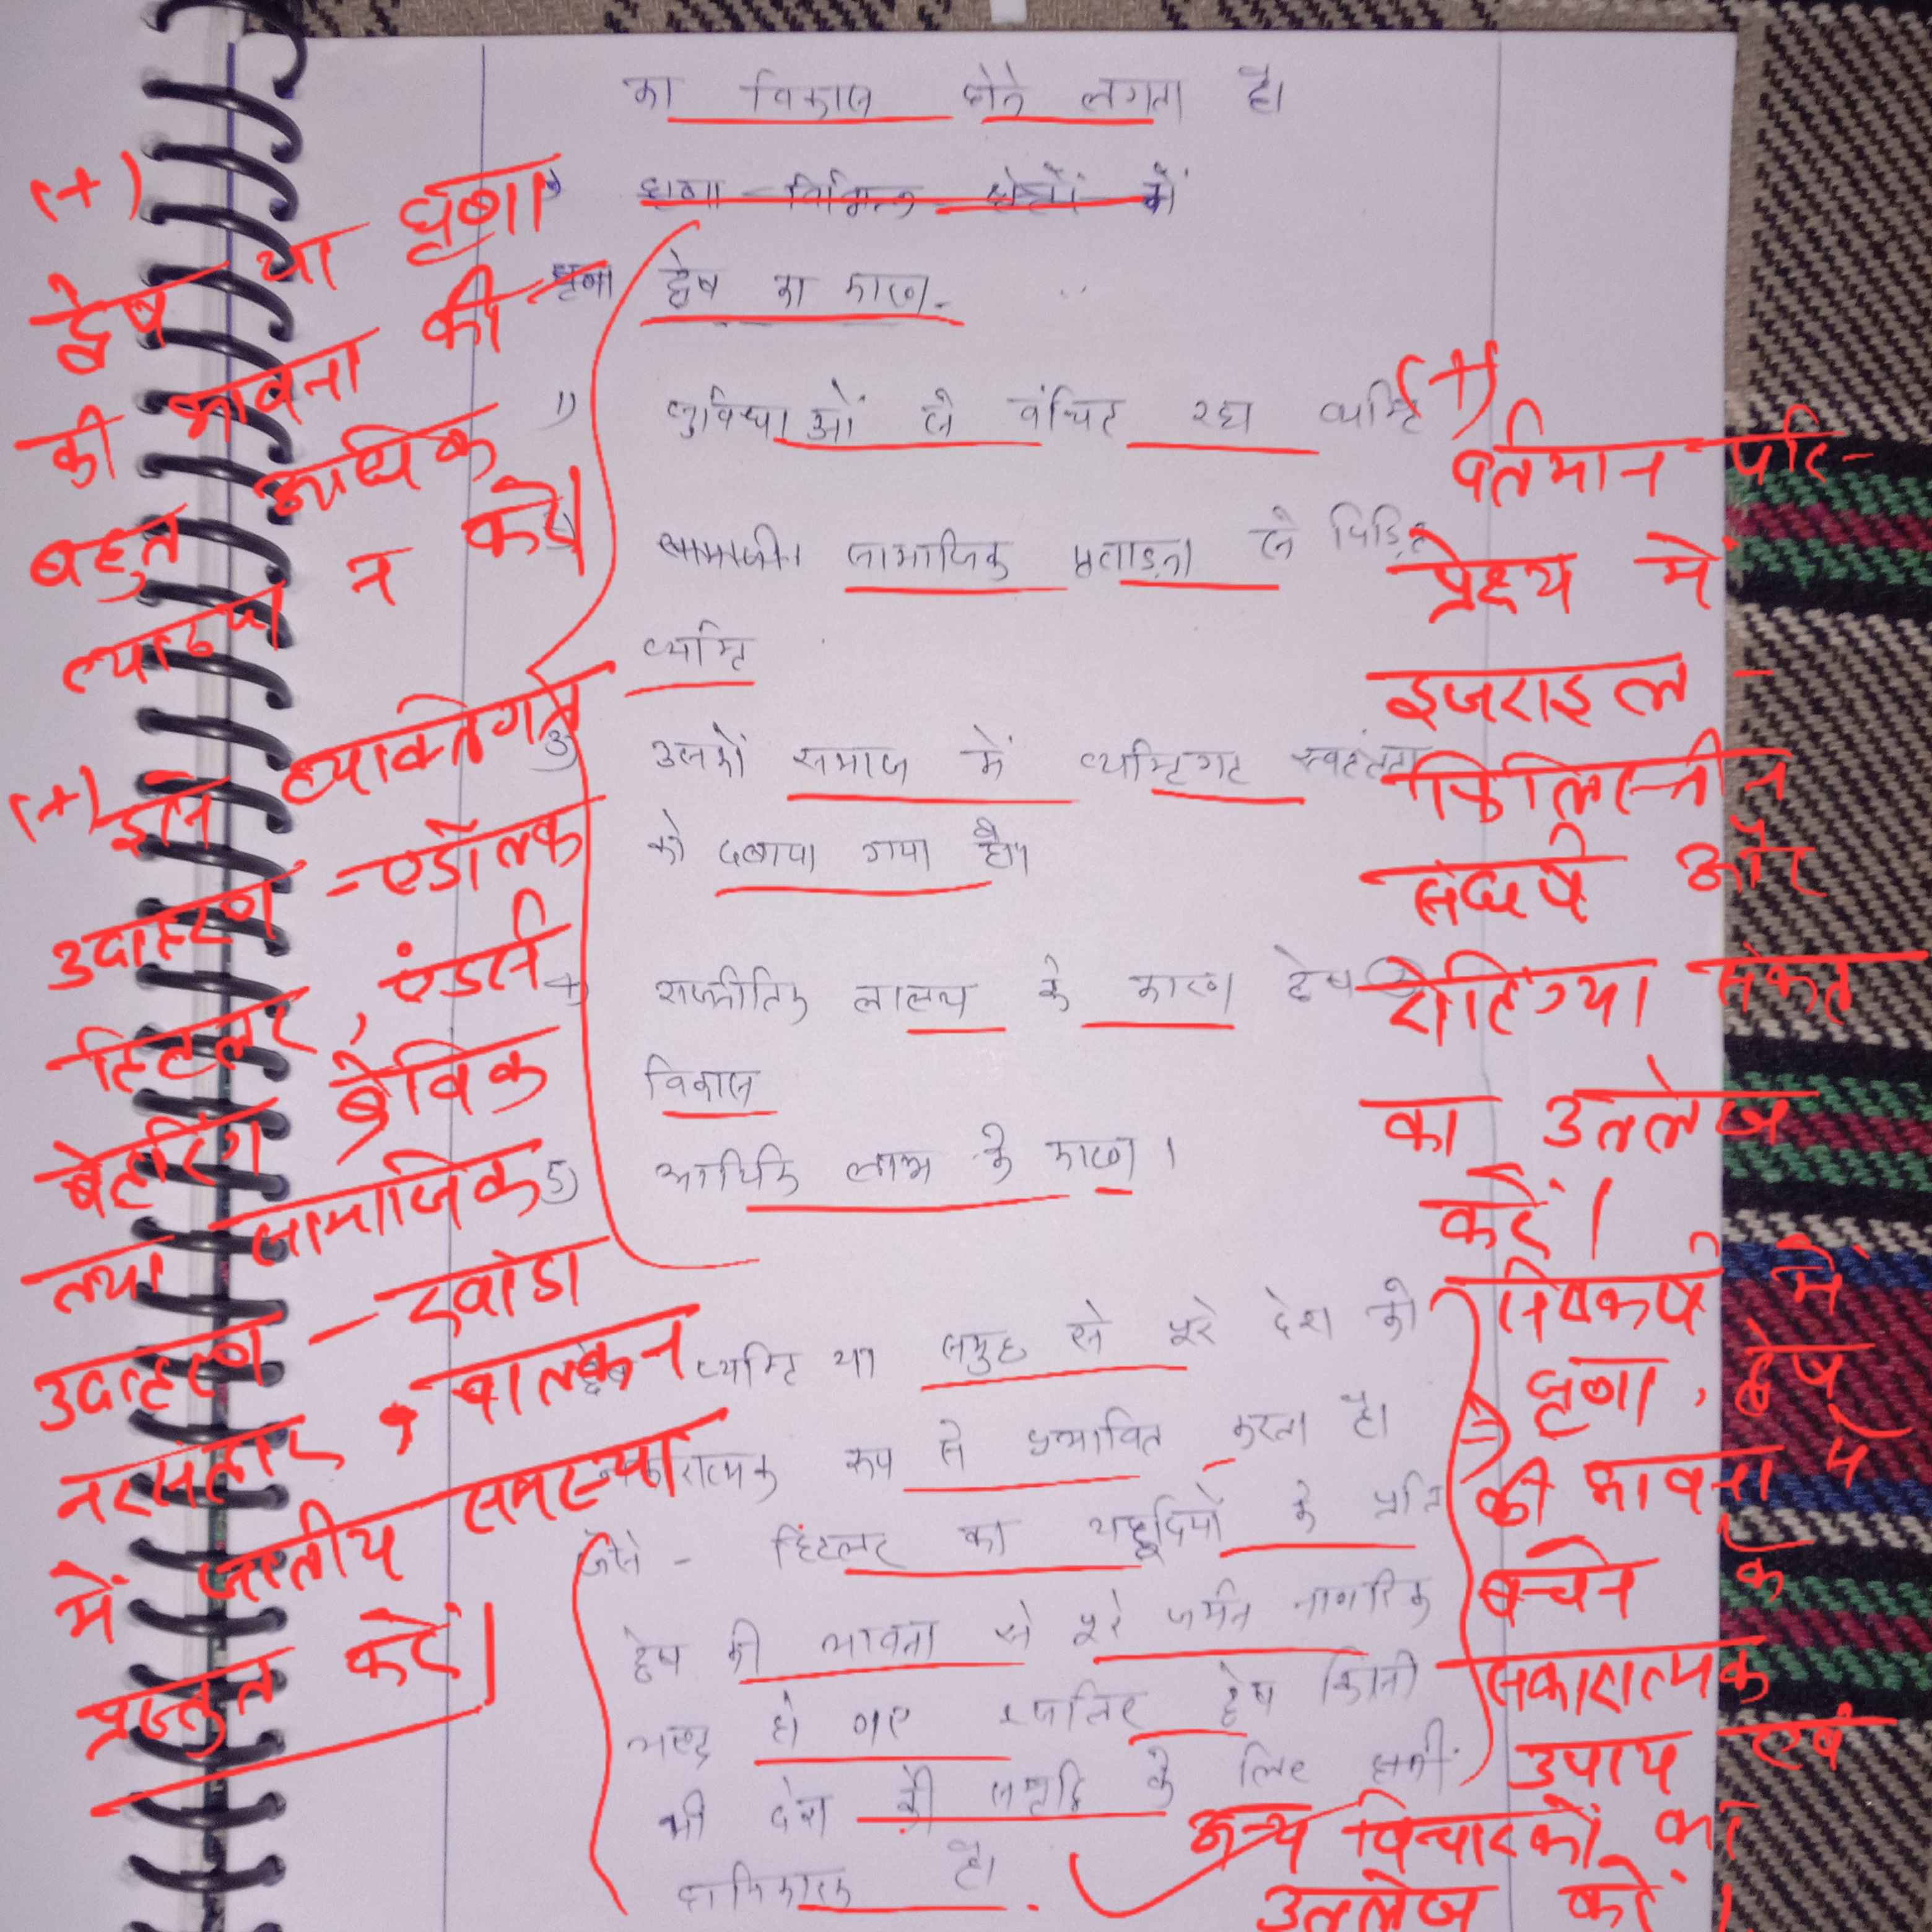 का विकास होने लगता है।
घृणा विभिन्न क्षेत्रों में
घृणा
द्वेष का कारण -
1) सुविधाओं से वंचित रहा व्यक्ति
सामाजिक सामाजिक प्रताड़ना से पिड़ित
व्यक्ति
3) उनको समाज में व्यक्तिगत स्वतंत्रता
को दबाया गया हो।
4) राजनीतिक लालच के कारण द्वेष
विकास
5) आर्थिक लाभ के कारण ।
द्वेष व्यक्ति या समुह से पूरे देश को
नकारात्मक रूप से प्रभावित करता है।
जैसे - हिटलर का यहूदियों के प्रति
द्वेष की भावना से पूरे जर्मन नागरिक
हो गए इसलिए द्वेष किसी
भी देश की समृद्धि के लिए
हानिकारक है।
(+)
द्वेष या घृणा
की भावना की
बहुत अधिक
व्याख्या न करें।
(+) इसमें व्यक्तिगत
उदाहरण - एडॉल्फ
हिटलर, एंडर्स
बेहरिंग ब्रेविक
तथा सामाजिक
उदाहरण - रवांडा
नरसंहार, बाल्कन
में जातीय समस्या
प्रस्तुत करें।
(+)
वर्तमान परि-
प्रेक्ष्य में
इजराइल -
फिलिस्तीन
संघर्ष और
रोहिंग्या संकट
का उल्लेख
करें।
निष्कर्ष में
घृणा, द्वेष
की भावना से
बचने के
सकारात्मक
उपाय एवं
अन्य विचारकों का
उल्लेख करें।